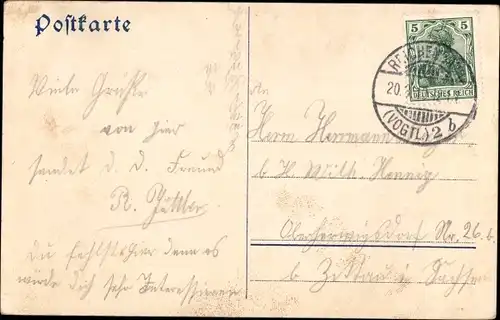 Postkarte
Viele Grüße
von hier
sendet D. D. Freund
R.
Du fehlst hier denn es
würde dich sehr Interessieren
An
Herrn Hermann
b H. Wilh. Hennig
Oberherwigsdorf Nr. 26 b.
b Zittau i. Sachsen
5 5
DEUTSCHES REICH
REICHENBACH
20.
(VOGTL) 2 b